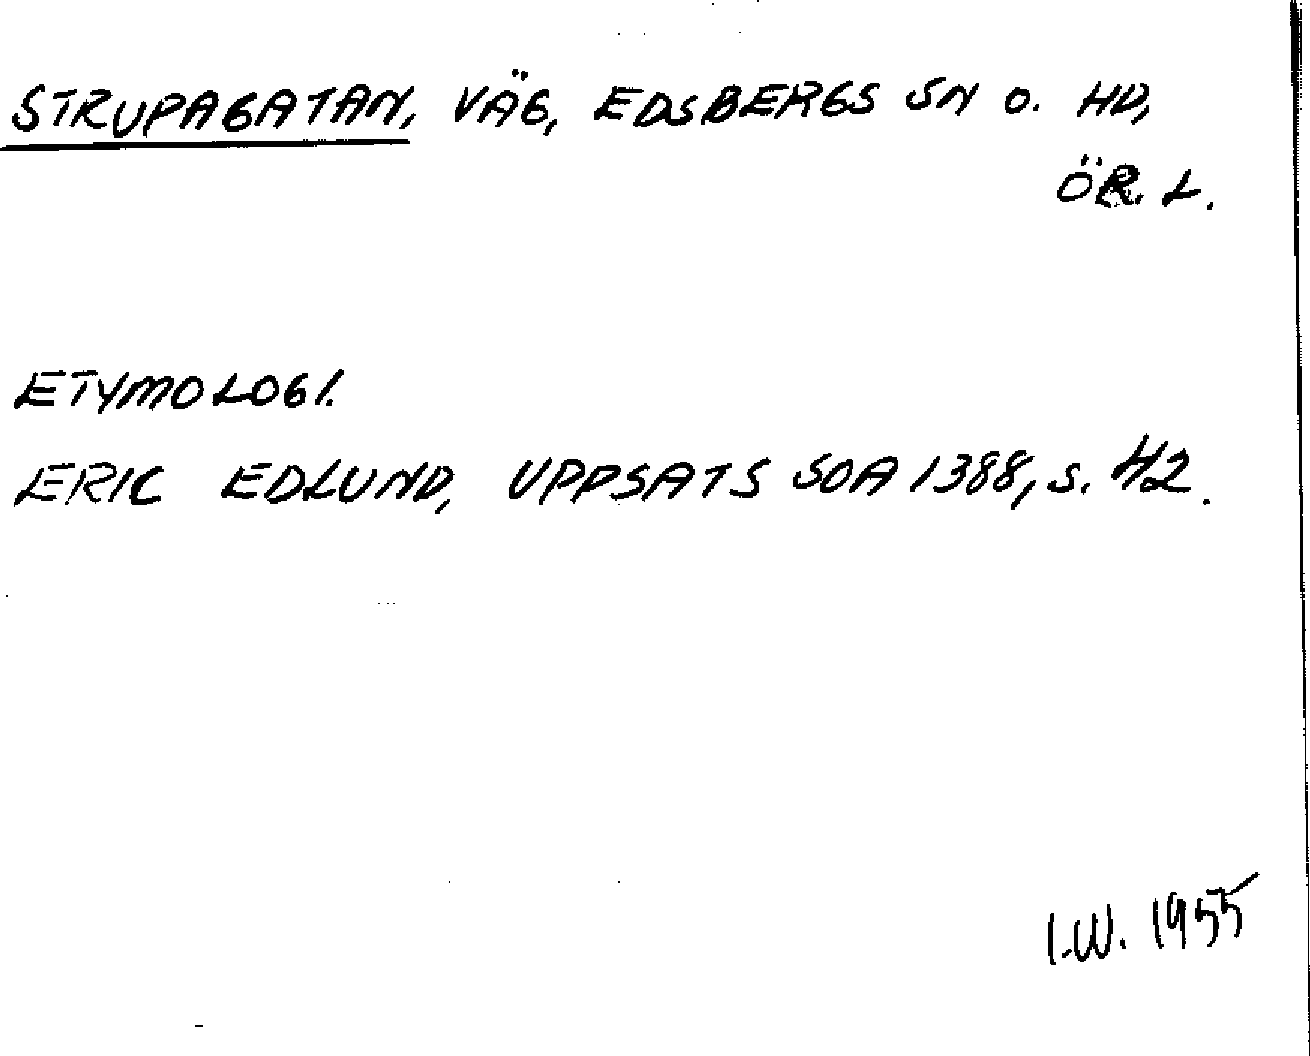 STRUPAGATAN, VÄG, EDSBERGS SN O. HD,
ÖR. L.
ETYMOLOGI.
ERIC EDLUND, UPPSATS SOA 1388, S. 42.
I.W. 1955